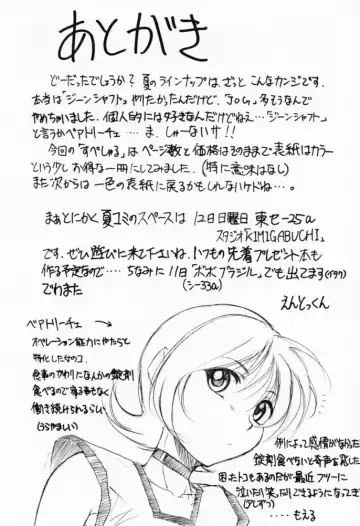 あとがき
どーだったでしょうか？夏のラインナップは、ざっと こんなカンジです.
本当は「ジーンシャフト」やりたかったんだけど、「JOG」多そうなんで
やめちゃいました. 個人的には好きなんだけどねえ…「ジーンシャフト」
と言うかベアトリーチェ … ま、しゃーないサ!!
今回の「すぺしゃる」は ページ数と価格はそのままで・表紙はカラー
という少しお得な一冊にしてみました. (特に意味はなし)
また次からは一色の表紙に戻るかもしれないケドね….
まぁとにかく 夏コミのスペースは 12日 日曜日 東セ-25a
スタジオ「KIMIGABUCHI」
です. ぜひ遊びに来て下さいね. いつもの先着プレゼント本も
作る予定なので…. ちなみに 11日「ポポブラジル」でも出てます(イタク)
(シー33a)
でわまた
えんどっくん
ベアトリーチェ
オペレーション能力にやたらと
特化した女のコ.
食事のかわりになんかの錠剤
食べるので寝る事もなく
働き続けられるらしい
(うらやましい)
例によって感情がなかったり
錠剤食べないと奇声を発した
困ったトコもあるのだが最近フツーに
泣いたり笑ったりできるようになってき
(少しずつ)
…… もえる